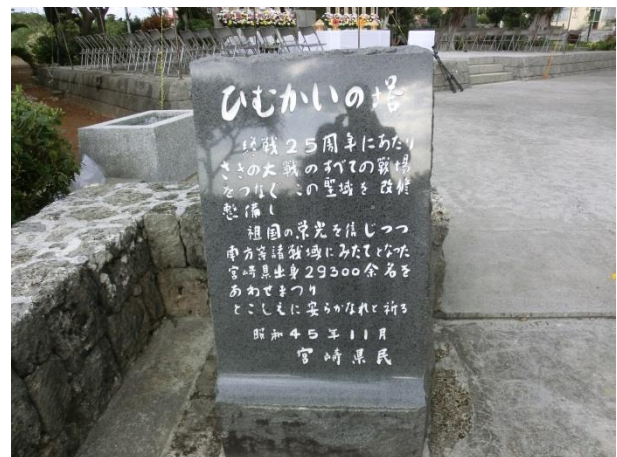 ひむかいの塔
終戦25周年にあたり
さきの大戦のすべての戦場
をつなぐ この聖域を 改修
整備し
祖国の栄光を信じつつ
南方等諸戦域にみたてとなった
宮崎県出身29300余名を
あわせまつり
とこしえに安らかなれと祈る
昭和45年11月
宮崎県民